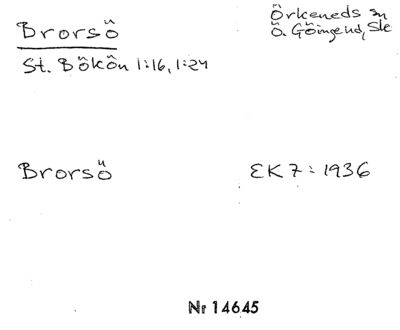 Brorsö
Örkeneds sn
Ö. Göinge hd, Sk
St. Bökön 1:16, 1:24
Brorsö
EK 7: 1936
Nr 14645